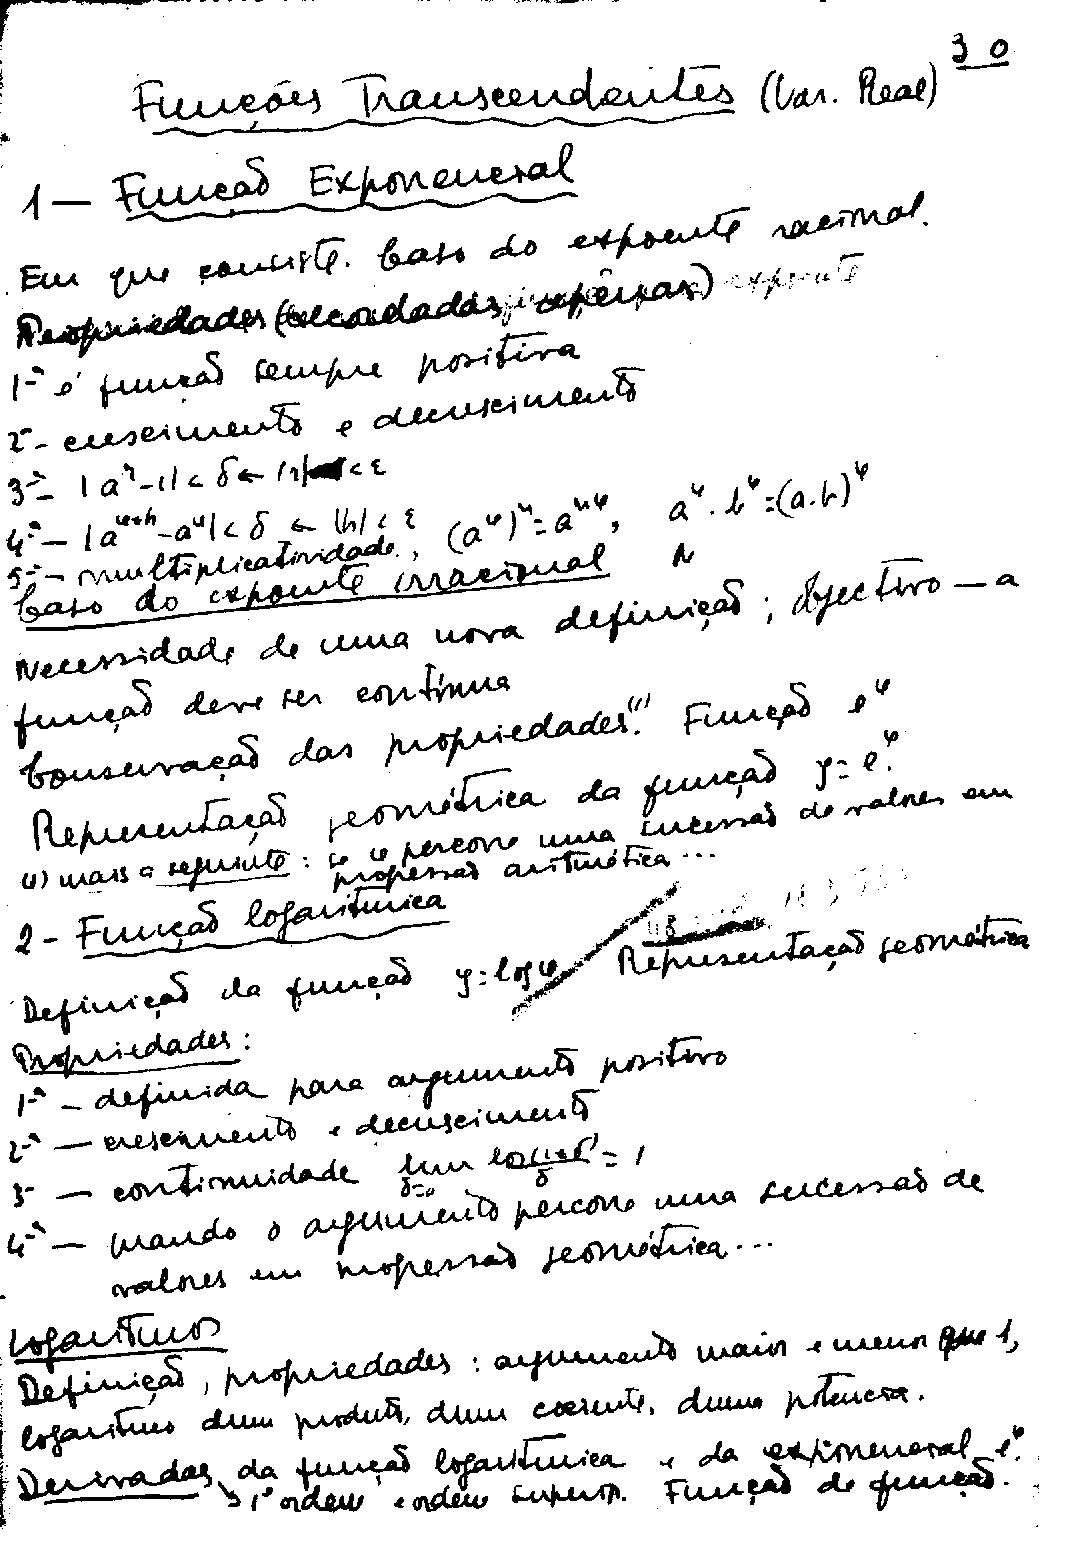 30
Funções Transcendentes (Var. Real)
1 — Função Exponencial
Em que consiste. Caso do expoente racional.
Propriedades (recordadas apenas) expoente
1ª é função sempre positiva
2ª - crescimento e decrescimento
3ª - |a^η - 1| < δ ← |η| < ε
4ª — |a^{φ+h} - a^φ| < δ ← |h| < ε
5ª — multiplicatividade; (a^φ)^ψ = a^{φψ}, a^φ · b^φ = (a·b)^φ
Caso do expoente irracional
Necessidade de uma nova definição; objectivo — a
função deve ser contínua
Conservação das propriedades.(1) Função e^φ
Representação geométrica da função y = e^φ.
(1) mais a seguinte: se φ percorre uma sucessão de valores em
progressão aritmética...
2 - Função logarítmica
Definição da função y = log φ Representação geométrica
Propriedades:
1ª — definida para argumento positivo
2ª — crescimento e decrescimento
3ª — continuidade lim log(1+δ)/δ = 1
δ=0
4ª — quando o argumento percorre uma sucessão de
valores em progressão geométrica...
Logaritmos
Definição, propriedades: argumento maior e menor que 1,
logaritmo dum produto, dum cociente, duma potência.
Derivadas da função logarítmica e da exponencial e^φ.
↳ 1ª ordem e ordem superior. Função de função.